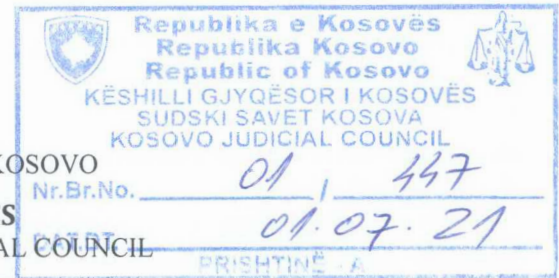 Republika e Kosovës
Republika Kosovo
Republic of Kosovo
KËSHILLI GJYQËSOR I KOSOVËS
SUDSKI SAVET KOSOVA
KOSOVO JUDICIAL COUNCIL
KOSOVO
Nr.Br.No. 01 / 447
S
01.07.21
AL COUNCIL
PRISHTINË - A